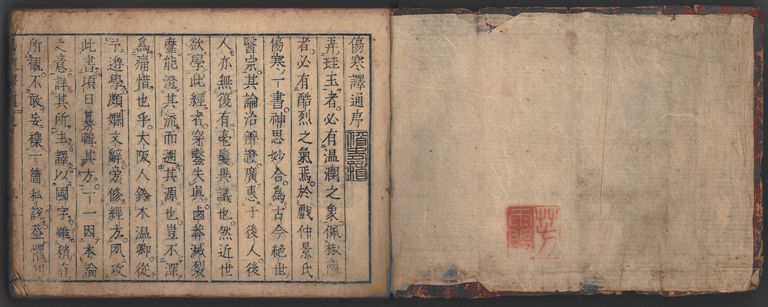 傷寒譯通序
弄珪玉者必有温潤之象佩椒
者必有酷烈之氣焉於戲仲景氏
傷寒一書神思妙合爲古今絶世
醫宗其論治辨證廣惠于後人後
人亦無復有毫異議也然近世
欲學此經者穿鑿失與鹵莽滅裂
靡能澄其流而遡其源也豈不深
爲痛惜也乎大阪人鈴木温卿從
予遊學頗嫻文辭旁修經方夙攻
此書頃日纂輯其方一一因本論
之意詳其所主譯以國字雖稍有
所觀不敢妄一箇私說蓋懼